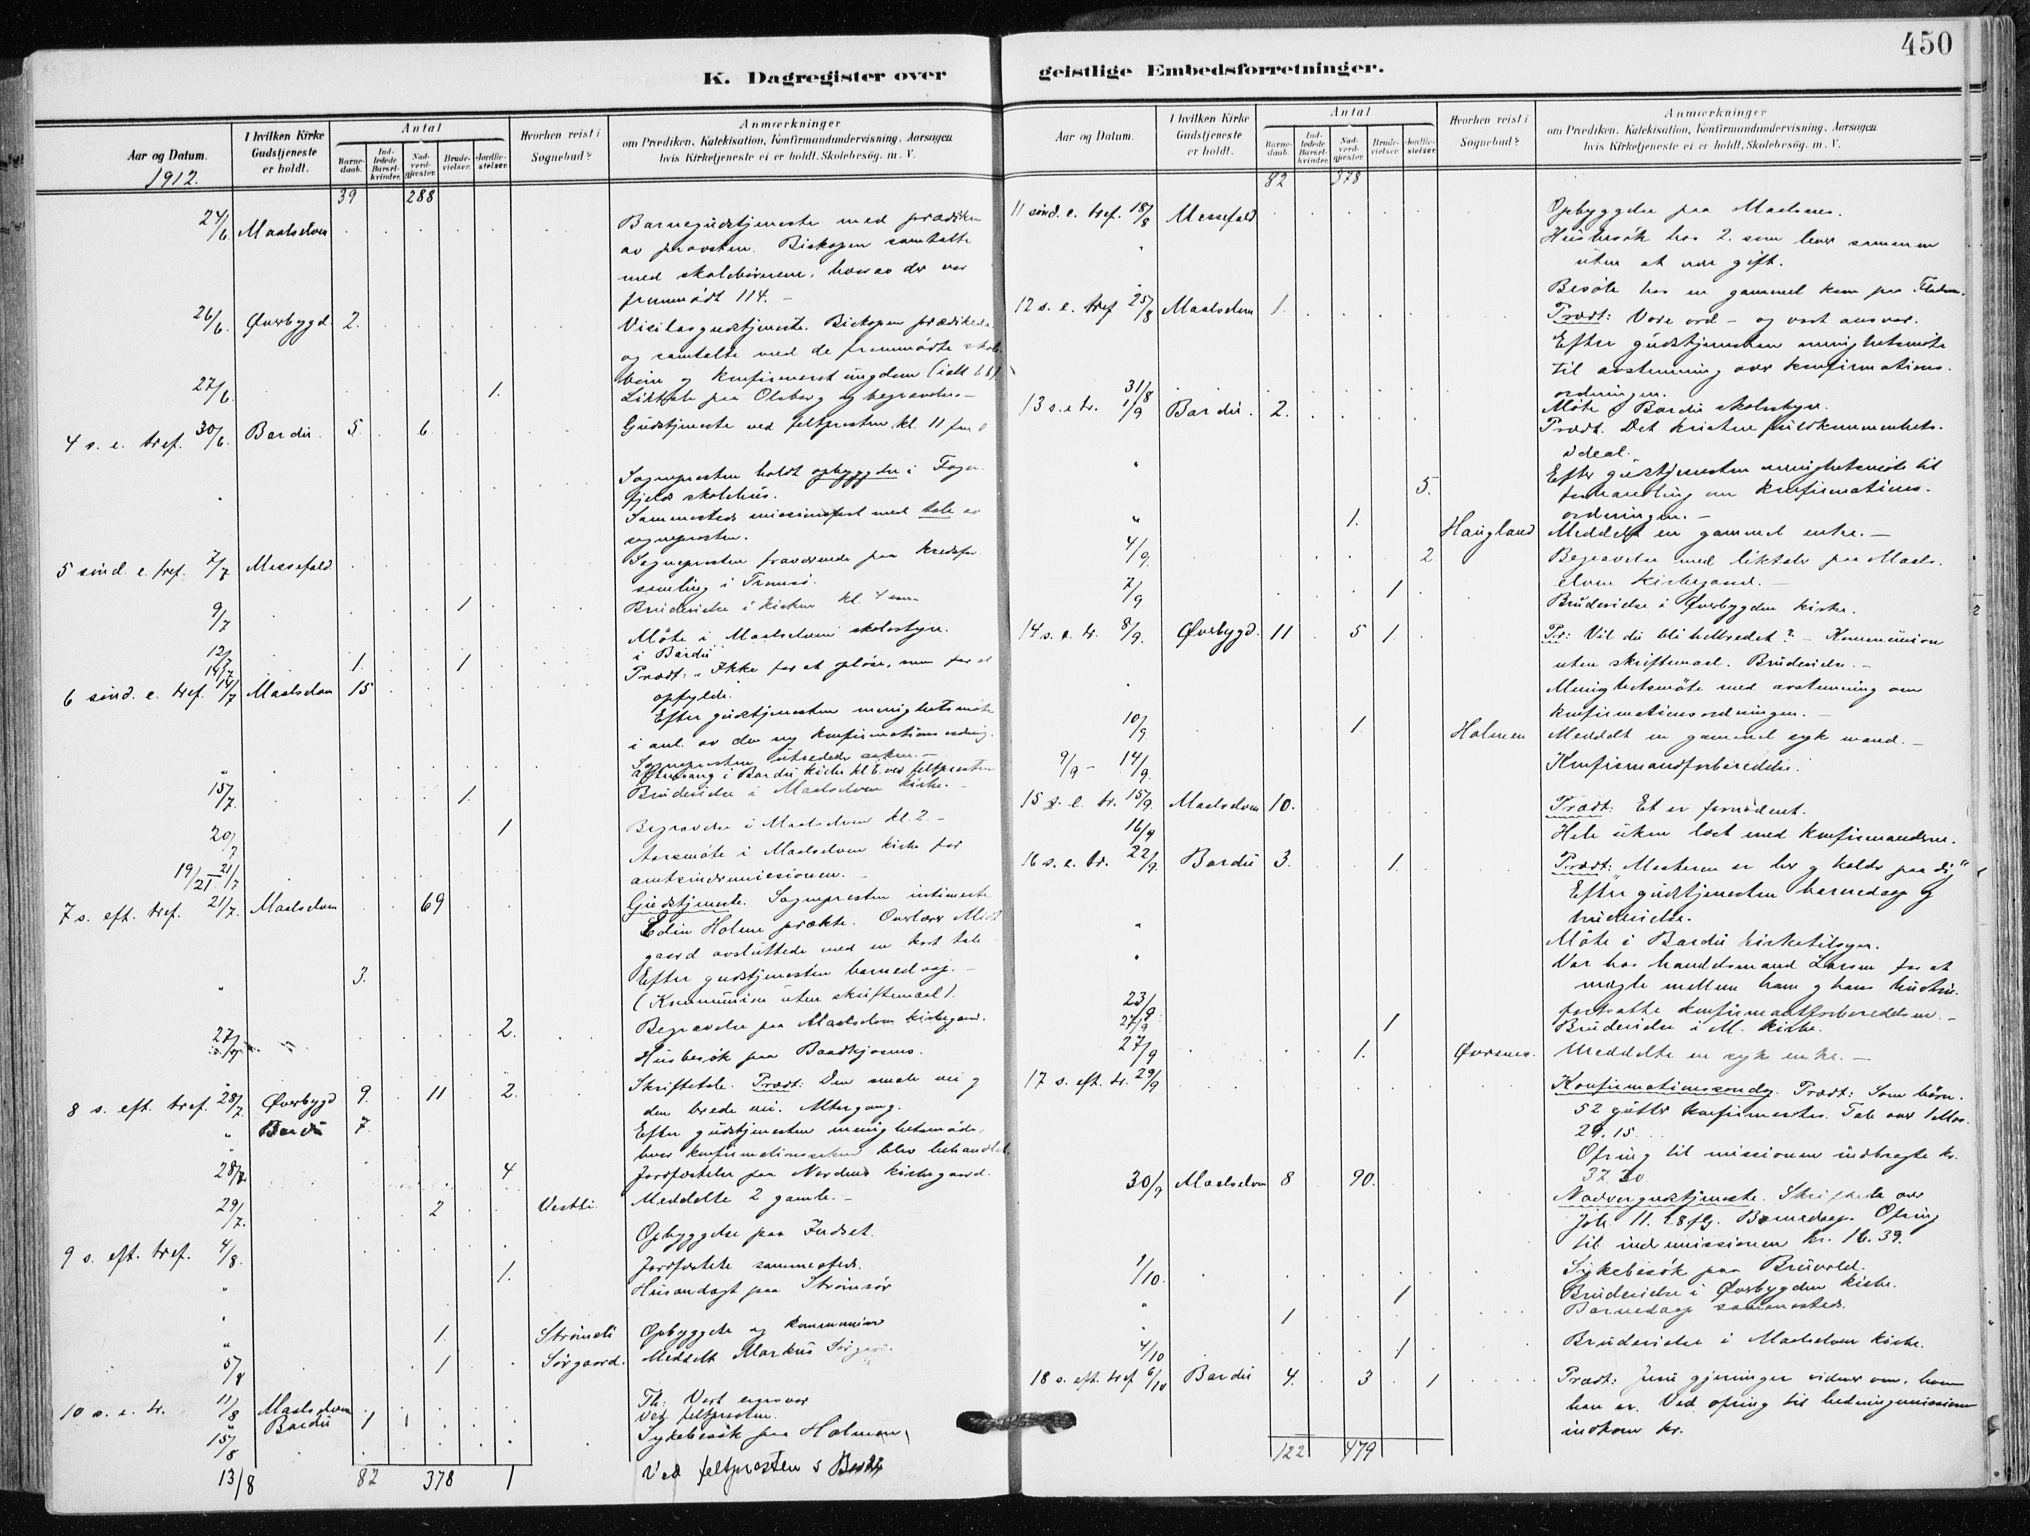 450
K. Dagregister over
geistlige Embedsforretninger.
Aar og Datum. 1912.
I hvilken Kirke Gudstjeneste er holdt.
Antal
Barne-daab. Ind-ledede Barsel-kvinder. Nad-verd-gjæster. Brude-vielser. Jordfæ-stelser.
Hvorhen reist i Sognebud?
Anmærkninger
om Prædiken. Katekisation, Konfirmandundervisning. Aarsagen
hvis Kirketjeneste ei er holdt. Skolebesøg. m. V.
39 288
24/6. Maalselven Barnegudstjeneste med prædiken
av provsten. Biskopen samtalte
med skolebørnene, hvorav der var
fremmødt 114. –
26/6. Øverbygd. 2. Visitasgudstjeneste. Biskopen prædikede
og samtalte med de fremmødte skole
børn og konfirmeret ungdom
27/6 1. Liktale paa Olsborg og begravelse –
4 s. e. tref. 30/6 Bardu. 5. 6 Gudstjeneste ved feltpresten kl. 11 fm
Sognepresten holdt opbyggelse i Fager
fjeld skolehus.
Sammesteds missionsfest med tale av
sognepresten.
5 sönd. e. tref. 7/7 Messefald. Sognepresten fraværende paa kredsfor
samling i Tromsö.
9/7 1 Brudevielse i kirken kl. 4 em.
Möte i Maalselven skolestyre.
12/7 i Bardu
14/7 1. 1
6 sönd. e. tref. 14/7 Maalselven 15 Præd.: "Ikke for at opløse, men for at
opfylde.
Efter gudstjenesten menighetsmøte
i anl. av den ny konfirmationsordning.
Sognepresten utredede saken. –
Aftensang i Bardu kirke kl 6. ved feltpresten
15/7. 1. Brudevielse i Maalselven kirke. –
20/7 1 Begravelse i Maalselven kl. 2. –
19/21 – 21/7 Aarsmöte i Maalselven kirke for
amtsindremissionen. –
7 s. eft. tref. 21/7. Maalselven 69 Gudstjeneste. Sognepresten intimerte
Edin Holme prækte.
gaard avsluttede med en kort tale
" 3. Efter gudstjenesten barnedaap. –
(Kommunion uten skriftemaal).
27/7 2. Begravelse paa Maalselven kirkegaard.
Husbesök paa Baadkjosnes.
8 s. eft. tref. 28/7 Øverbygd 9. 11 2. Skriftetale. Præd.: Den smale vei og
den brede vei. Altergang.
" Bardu 7. Efter gudstjenesten menighetsmøde,
hvor konfirmationssaken blev behandlet
28/7. 4 Jordfæstelse paa Nordmo kirkegaard.
29/7. 2 Vestli. Meddelte 2 gamle. –
Opbyggelse paa Indset.
9 s. eft. tref. 4/8. 1. Jordfæstede sammesteds.
" Husandagt paa Strömsör
" 1. Strömsli Opbyggelse og kommunion
5/8 1 Sørgaard. Meddelt Markus Sørgaard.
10 s. e. tr. 11/8 Maalselven Th: Vort ansvar
" Bardu 1 1 Ved feltpresten.
15/8 Sykebesök paa Holmen
13/8 82 378 1 Ved feltpresten i Bardu
Aar og Datum.
I hvilken Kirke Gudstjeneste er holdt.
Antal
Barne-daab. Ind-ledede Barsel-kvinder. Nad-verd-gjæster. Brude-vielser. Jordfæ-stelser.
Hvorhen reist i Sognebud?
Anmærkninger
om Prædiken. Katekisation, Konfirmandundervisning. Aarsagen
hvis Kirketjeneste ei er holdt. Skolebesøg. m. V.
82 378
11 sönd. e. tref. 18/8 Messefald Opbyggelse paa Maalsnes.
" Husbesök hos 2. som lever sammen
uten at være gift.
Besøk hos en gammel kone paa
12 s. e. tref 25/8 Maalselven 1. Præd: Vore ord – og vort ansvar.
Efter gudstjenesten menighetsmöte
til avstemning over konfirmations.
ordningen.
31/8 Möte i Bardu skolestyre.
13 s. e. tr. 1/9 Bardu. 2. Præd. Det kristne fuldkommenhets.
ideal.
" 5. Efter gudstjenesten menighetsmöte til
forhandling om konfirmations.
ordningen. –
" 1. Haugland Meddelt en gammel enke. –
4/9 2 Begravelse med liktale paa Maals.
elven kirkegaard. –
7/9 1 Brudevielse i Øverbygden kirke.
14 s. e. tr. 8/9. Øverbygd. 11 5 1 Pr: Vil du bli helbredet? – Kommunion
uten skriftemaal. Brudevielse. –
Menighetsmöte med avstemning om
konfirmationsordningen. –
10/9 1. Holmen Meddelt en gammel syk mand. –
9/9 – 14/9. Konfirmandforberedelse.
15 s. e. tr. 15/9. Maalselven 10. Præd: Et er fornødent.
16/9 Hele uken læst med konfirmanderne.
16 s. e. tr. 22/9. Bardu 3. 1 Præd: "Mesteren er her og kalder paa dig"
Efter gudstjenesten barnedaap og
brudevielse.
" Möte i Bardu kirketilsyn.
" Var hos handelsmand Larsen for at
mægle mellem ham og hans hustru.
23/9 fortsatte konfirmantforberedelsen. –
27/9 1 Brudevielse i M. kirke.
27/9 1. Øversnes. Meddelte en syk enke. –
17 s. eft. tr. 29/9 Konfirmationssöndag. Præd: Som børn.
52 gutter konfirmertes. Tale over 1 Mos.
29.15.
Ofring til missionen indbragte kr.
37.20.
30/9 Maalselven 8 90. Nadvergudstjeneste. Skriftetale over
Joh. 11. 28 flg. Barnedaap. Ofring
til indremissionen kr. 16.39.
1/10 Sykebesök paa Bruvold.
1 Brudevielse i Øverbygden kirke.
" 1 Barnedaap sammesteds.
4/10 1 Brudevielse i Maalselven kirke.
18 s. eft. tref 6/10 Bardu 4. 3 1 Præd: Jesu gjerninger vidner om, hvem
han er. Ved ofring til hedningmissionen
indkom kr.
122 479